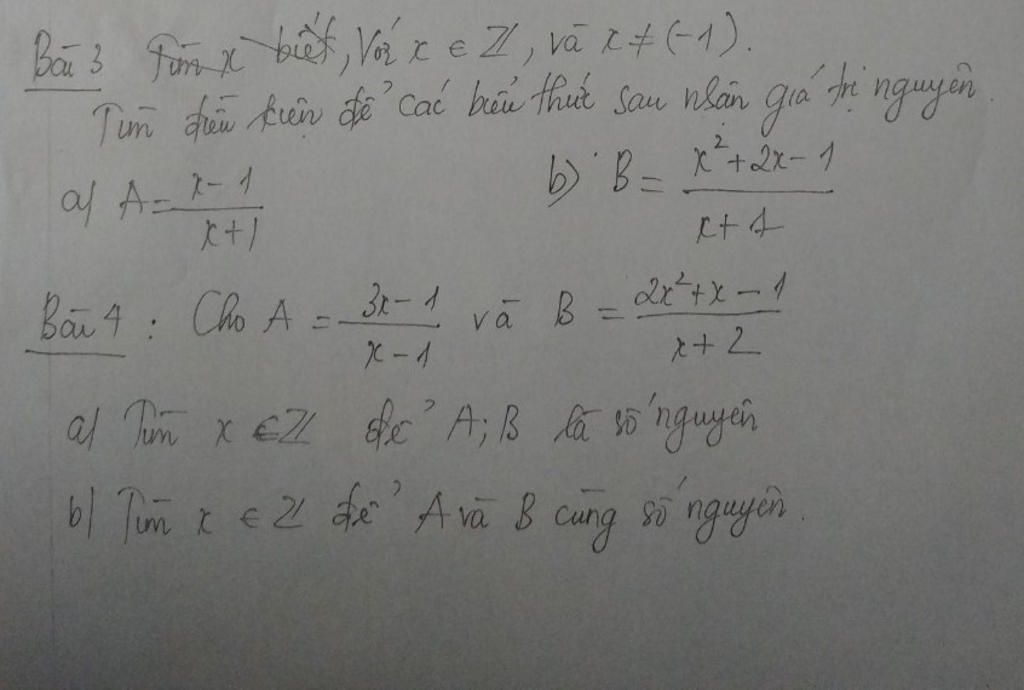 Bài 3 Tìm x biết, Với x ∈ ℤ, và x ≠ (-1).
Tìm điều kiện để các biểu thức sau nhận giá trị nguyên.
a/ A = (x - 1)/(x + 1) b) B = (x² + 2x - 1)/(x + 1)
Bài 4 : Cho A = (3x - 1)/(x - 1) và B = (2x² + x - 1)/(x + 2)
a/ Tìm x ∈ ℤ để A; B là số nguyên
b/ Tìm x ∈ ℤ để A và B cùng số nguyên.